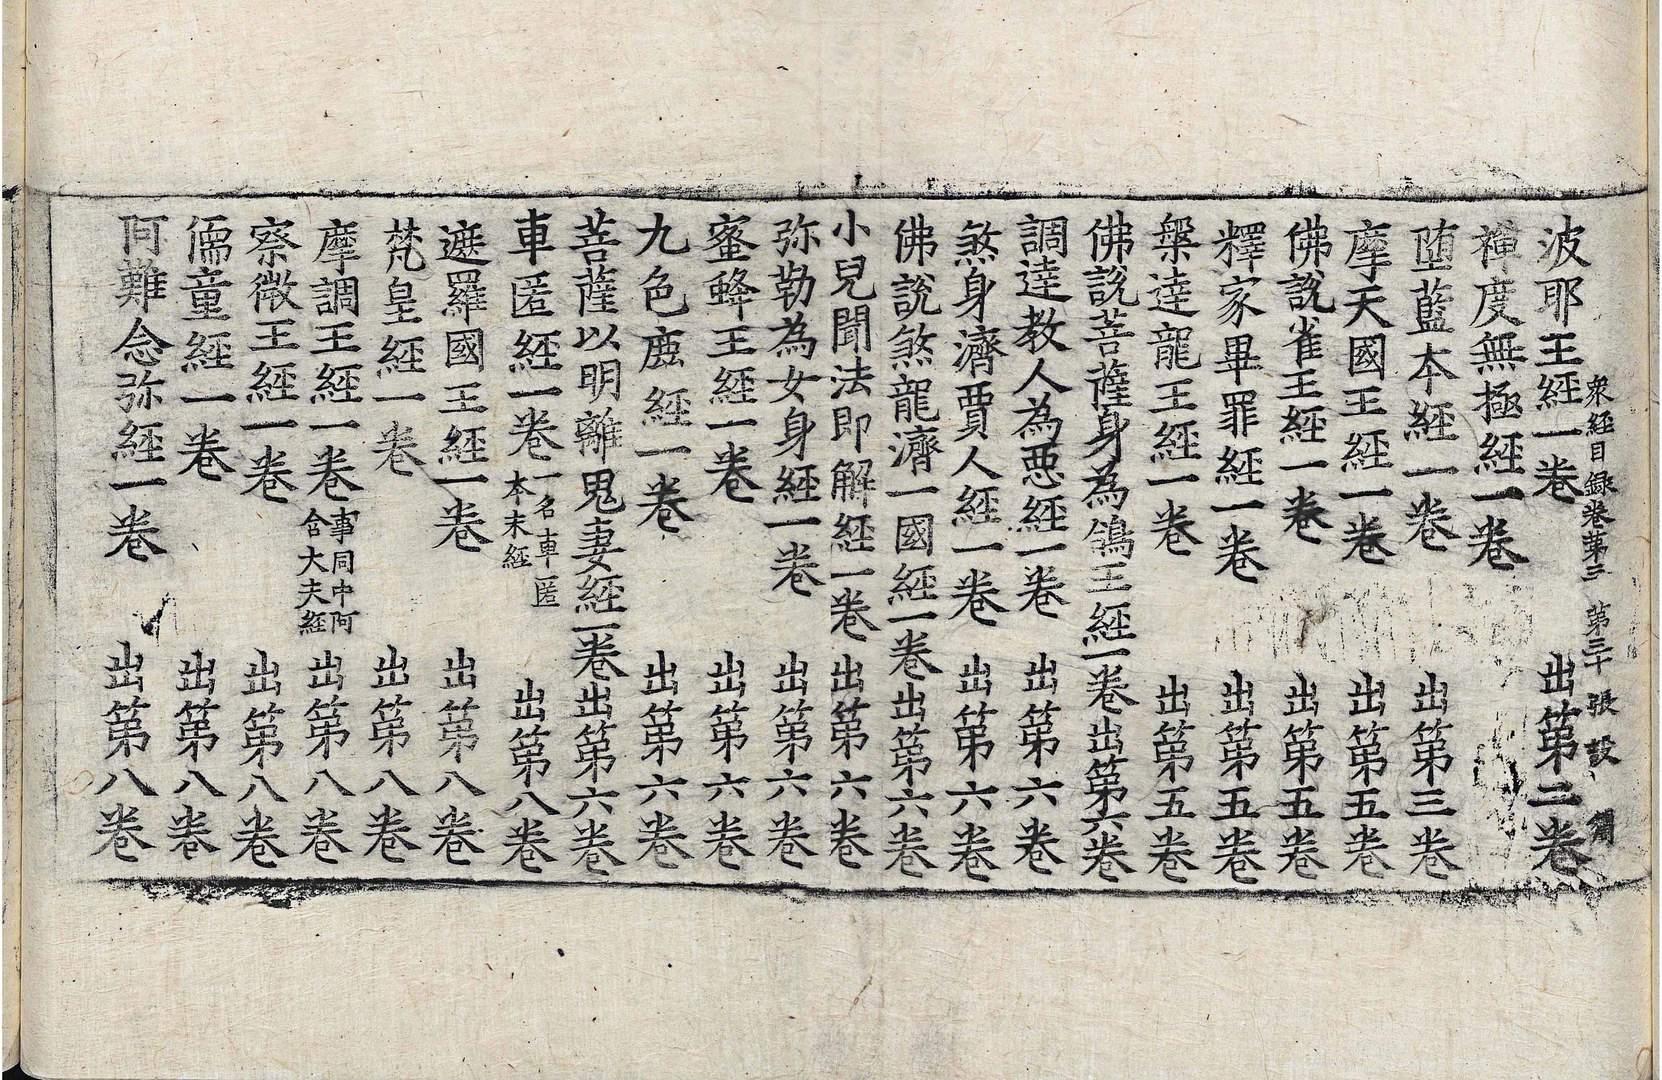 衆經目録卷第二 第三十張 設
波耶王經一卷 出第二卷
禅度無極經一卷
堕藍本經一卷 出第三卷
摩天國王經一卷 出第五卷
佛說雀王經一卷 出第五卷
釋家畢罪經一卷 出第五卷
槃達龍王經一卷 出第五卷
佛說菩薩身為鴿王經一卷出第六卷
調達教人為惡經一卷 出第六卷
煞身濟賈人經一卷 出第六卷
佛說煞龍濟一國經一卷出第六卷
小兒聞法即解經一卷 出第六卷
弥勒為女身經一卷 出第六卷
蜜蜂王經一卷 出第六卷
九色鹿經一卷 出第六卷
菩薩以明離鬼妻經一卷出第六卷
車匿經一卷 一名車匿本末經 出第八卷
遮羅國王經一卷 出第八卷
梵皇經一卷 出第八卷
摩調王經一卷 事同中阿含大天經 出第八卷
察微王經一卷 出第八卷
儒童經一卷 出第八卷
阿難念弥經一卷 出第八卷